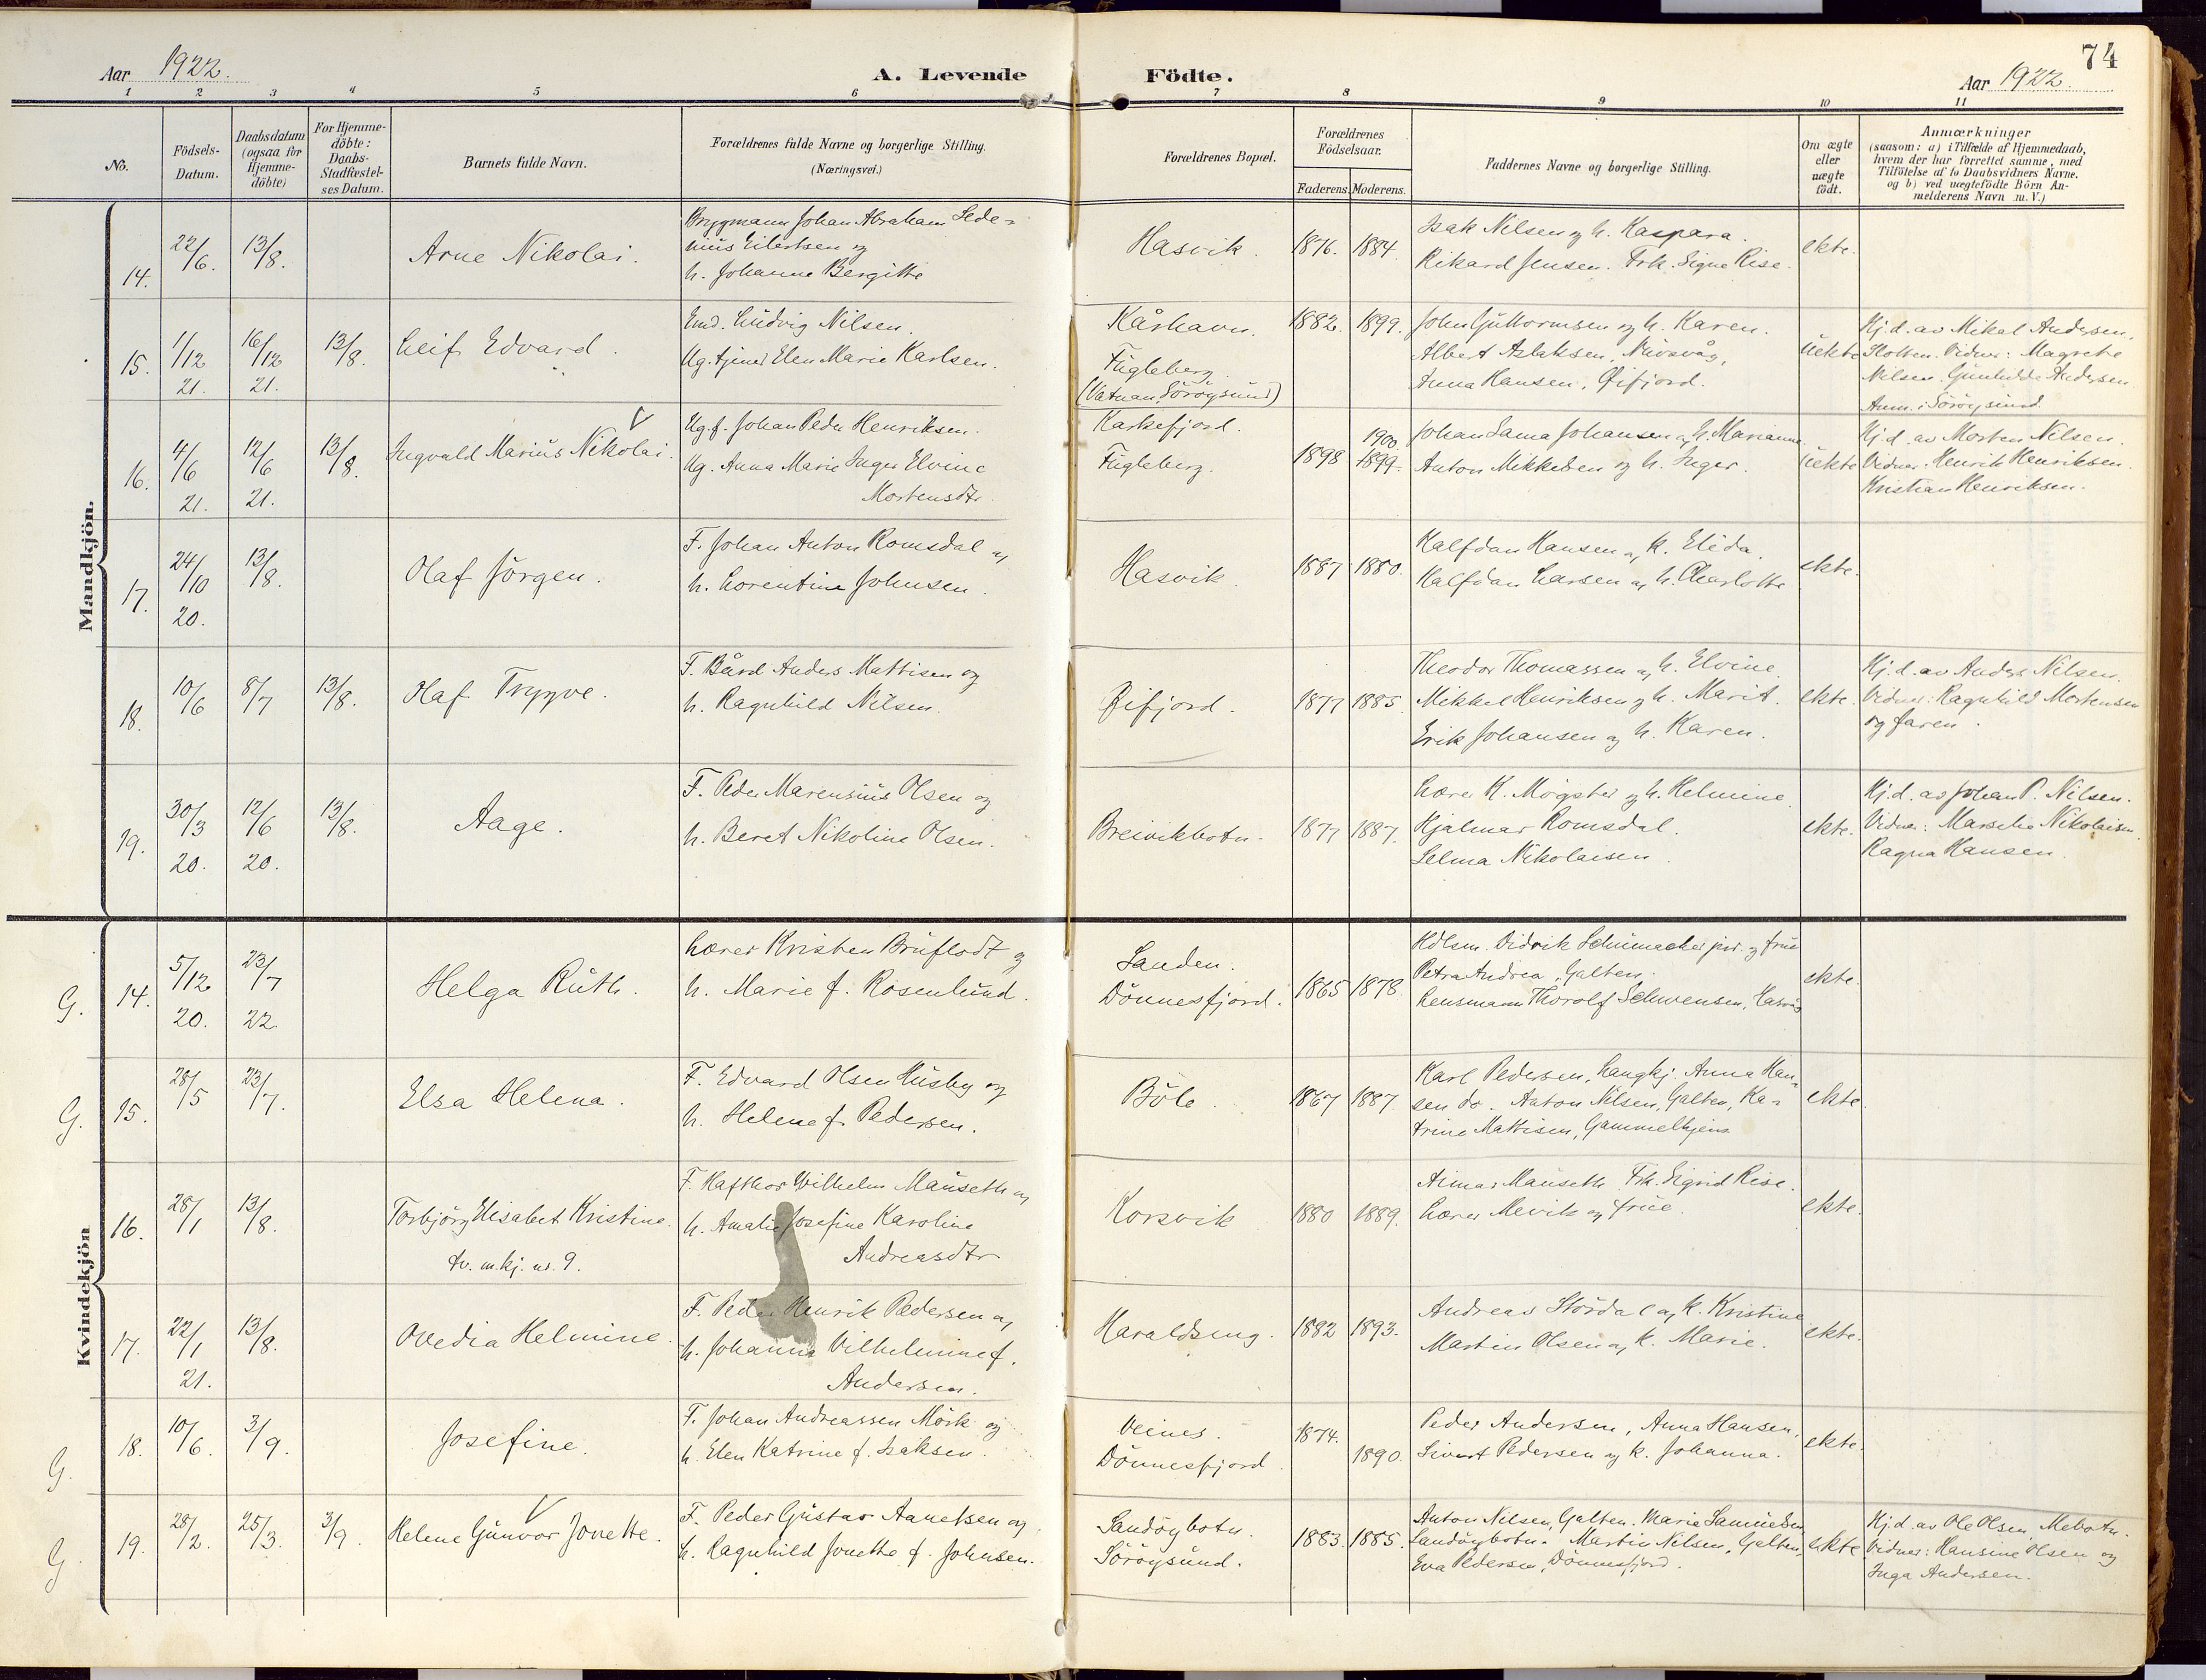 74
Aar 1922.
A. Levende Födte.
Aar 1922.
1 2 3 4 5 6 7 8 9 10 11
No.
Födsels-
Datum.
Daabsdatum
(ogsaa for
Hjemme-
döbte)
For Hjemme-
döbte:
Daabs-
Stadfæstel-
ses Datum.
Barnets fulde Navn.
Forældrenes fulde Navne og borgerlige Stilling.
(Næringsvei.)
Forældrenes Bopæl.
Forældrenes
Födselsaar.
Faderens. Moderens.
Faddernes Navne og borgerlige Stilling.
Om ægte
eller
uægte
födt.
Anmærkninger
(saasom: a) i Tilfælde af Hjemmedaab,
hvem der har forrettet samme, med
Tilföielse af to Daabsvidners Navne.
og b) ved uægtefödte Börn An-
melderens Navn m. V.)
Mandkjön.
14.
22/6.
13/8.
Arne Nikolai.
Bryggmann Johan Abraham Sede-
nius Eilertsen og
h. Johanne Bergitte
Hasvik.
1876. 1884.
Isak Nilsen og h. Kaspara.
Rikard Jensen. Frk. Signe Rise.
ekte.
15.
1/12
21.
16/12
21.
13/8.
Leif Edvard.
Emd. Ludvig Nilsen.
Ug. tjener Elen Marie Karlsen.
Kårhavn.
Fugleberg
(Vatnan, Sörøysund)
1882. 1899.
John Guttormsen og h. Karen.
Albert Aslaksen,
Anna Hansen, Øifjord.
uekte
Hj.d. av Mikal Andersen,
Slotten. Vidner: Magrete
Nilsen. Gunhilde Andersen
Anm. i Sörøysund.
16.
4/6
21.
12/6
21.
13/8.
Ingvald Marius Nikolai.
Ug.f. Johan Peder Henriksen.
Ug. Anna Marie Inger Elvine
Mortensdtr.
Karkefjord.
Fugleberg.
1898 1900 1899.
Johan Sama Johansen og h. Marianne
Anton Mikkelsen og h. Inger.
uekte
Hj.d. av Morten Nilsen.
Vidner: Henrik Henriksen.
Kristian Henriksen.
17.
24/10
20.
13/8.
Olaf Jörgen.
F. Johan Anton Romsdal og
h. Lorentine Johnsen.
Hasvik.
1887 1880.
Halfdan Hansen og k. Elida.
Halfdan Larsen og h. Charlotte
ekte.
18.
10/6
8/7
13/8.
Olaf Trygve.
F. Bård Anders Mattisen og
h. Ragnhild Nilsen.
Øifjord.
1877 1885.
Theodor Thomassen og h. Elvine.
Mikkel Henriksen og h. Marit.
Erik Johansen og h. Karen.
ekte.
Hj.d. av Anders Nilsen.
Vidner: Ragnhild Mortensen
og faren.
19.
30/3
20.
12/6
20.
13/8.
Aage.
F. Peder Marensius Olsen og
h. Beret Nikoline Olsen.
Breivikbotn
1877 1887.
Lærer K. Mögster og h. Helmine.
Hjalmar Romsdal.
Selma Nikolaisen.
ekte.
Hj.d. av Johan P. Nilsen.
Vidner: Marselie Nikolaisen
Ragna Hansen.
Kvindekjön
G.
14.
5/12
20.
23/7
22.
Helga Ruth.
Lærer Kristen Bruflodt og
h. Marie f. Rosenlund.
Sanden.
Dönnesfjord.
1865 1878.
Hdlsm. Didrik Schumacker jnr. og frue
Petra Andrea, Galten.
Lensmann Thorolf Schwensen, Hasvåg
ekte.
G.
15.
28/5
23/7.
Elsa Helena.
F. Edvard Olsen Husby og
h. Helene f. Pedersen.
Böle.
1867 1887
Karl Pedersen, Langkj. Anna Han-
sen do. Anton Nilsen, Galten, Ka-
trine Mattisen, Gammelkjens
ekte.
16.
28/1
13/8.
Torbjörg Elisabet Kristine.
tv. m.kj. nr. 9.
F. Hafthor Wilhelm Mauseth og
h. Amalie Josefine Karoline
Andreasdtr
Korsvik
1880 1889.
Aimar Mauseth. Frk. Sigrid Rise.
Lærer Mevik og frue.
ekte.
17.
22/1
21.
13/8.
Ovedia Helmine.
F. Peder Henrik Pedersen og
h. Johanna Vilhelmine f.
Andersen.
Haraldseng.
1882 1893.
Andreas Stördal og k. Kristine
Martin Olsen og k. Marie.
ekte.
G.
18.
10/6.
3/9.
Josefine.
F. Johan Andreassen Mörk og
h. Elen Katrine f. Isaksen.
Veines.
Dönnesfjord.
1874. 1890.
Peder Andersen, Anna Hansen,
Sivert Pedersen og k. Johanna.
ekte.
G.
19.
28/2.
25/3.
3/9.
Helene Gunvor Jonette.
F. Peder Gustav Aanetsen og
h. Ragnhild Jonette f. Johnsen.
Sandöybotn.
Söröysund.
1883. 1885.
Anton Nilsen, Galten. Marie Samuelsen,
Sandöybotn. Martin Nilsen, Galten,
Eva Pedersen, Dönnesfjord.
ekte
Hj.d. av Ole Olsen, Mebotn.
Vidner: Hansine Olsen og
Inga Andersen.